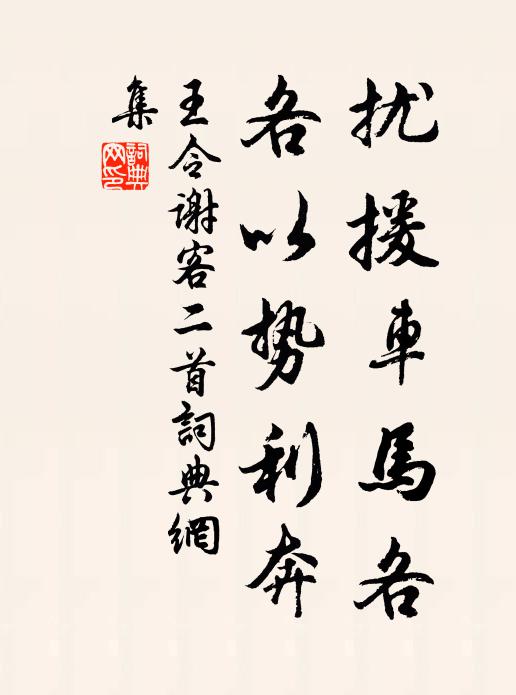 扰援車馬各
各以势利奔
王令谢客二首詞典網
集
詞典
网印